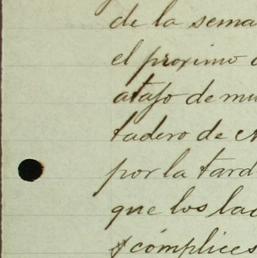 de la sema
el proximo
atajo de mu
tadero de
por la tard
que los lad
y cómplices